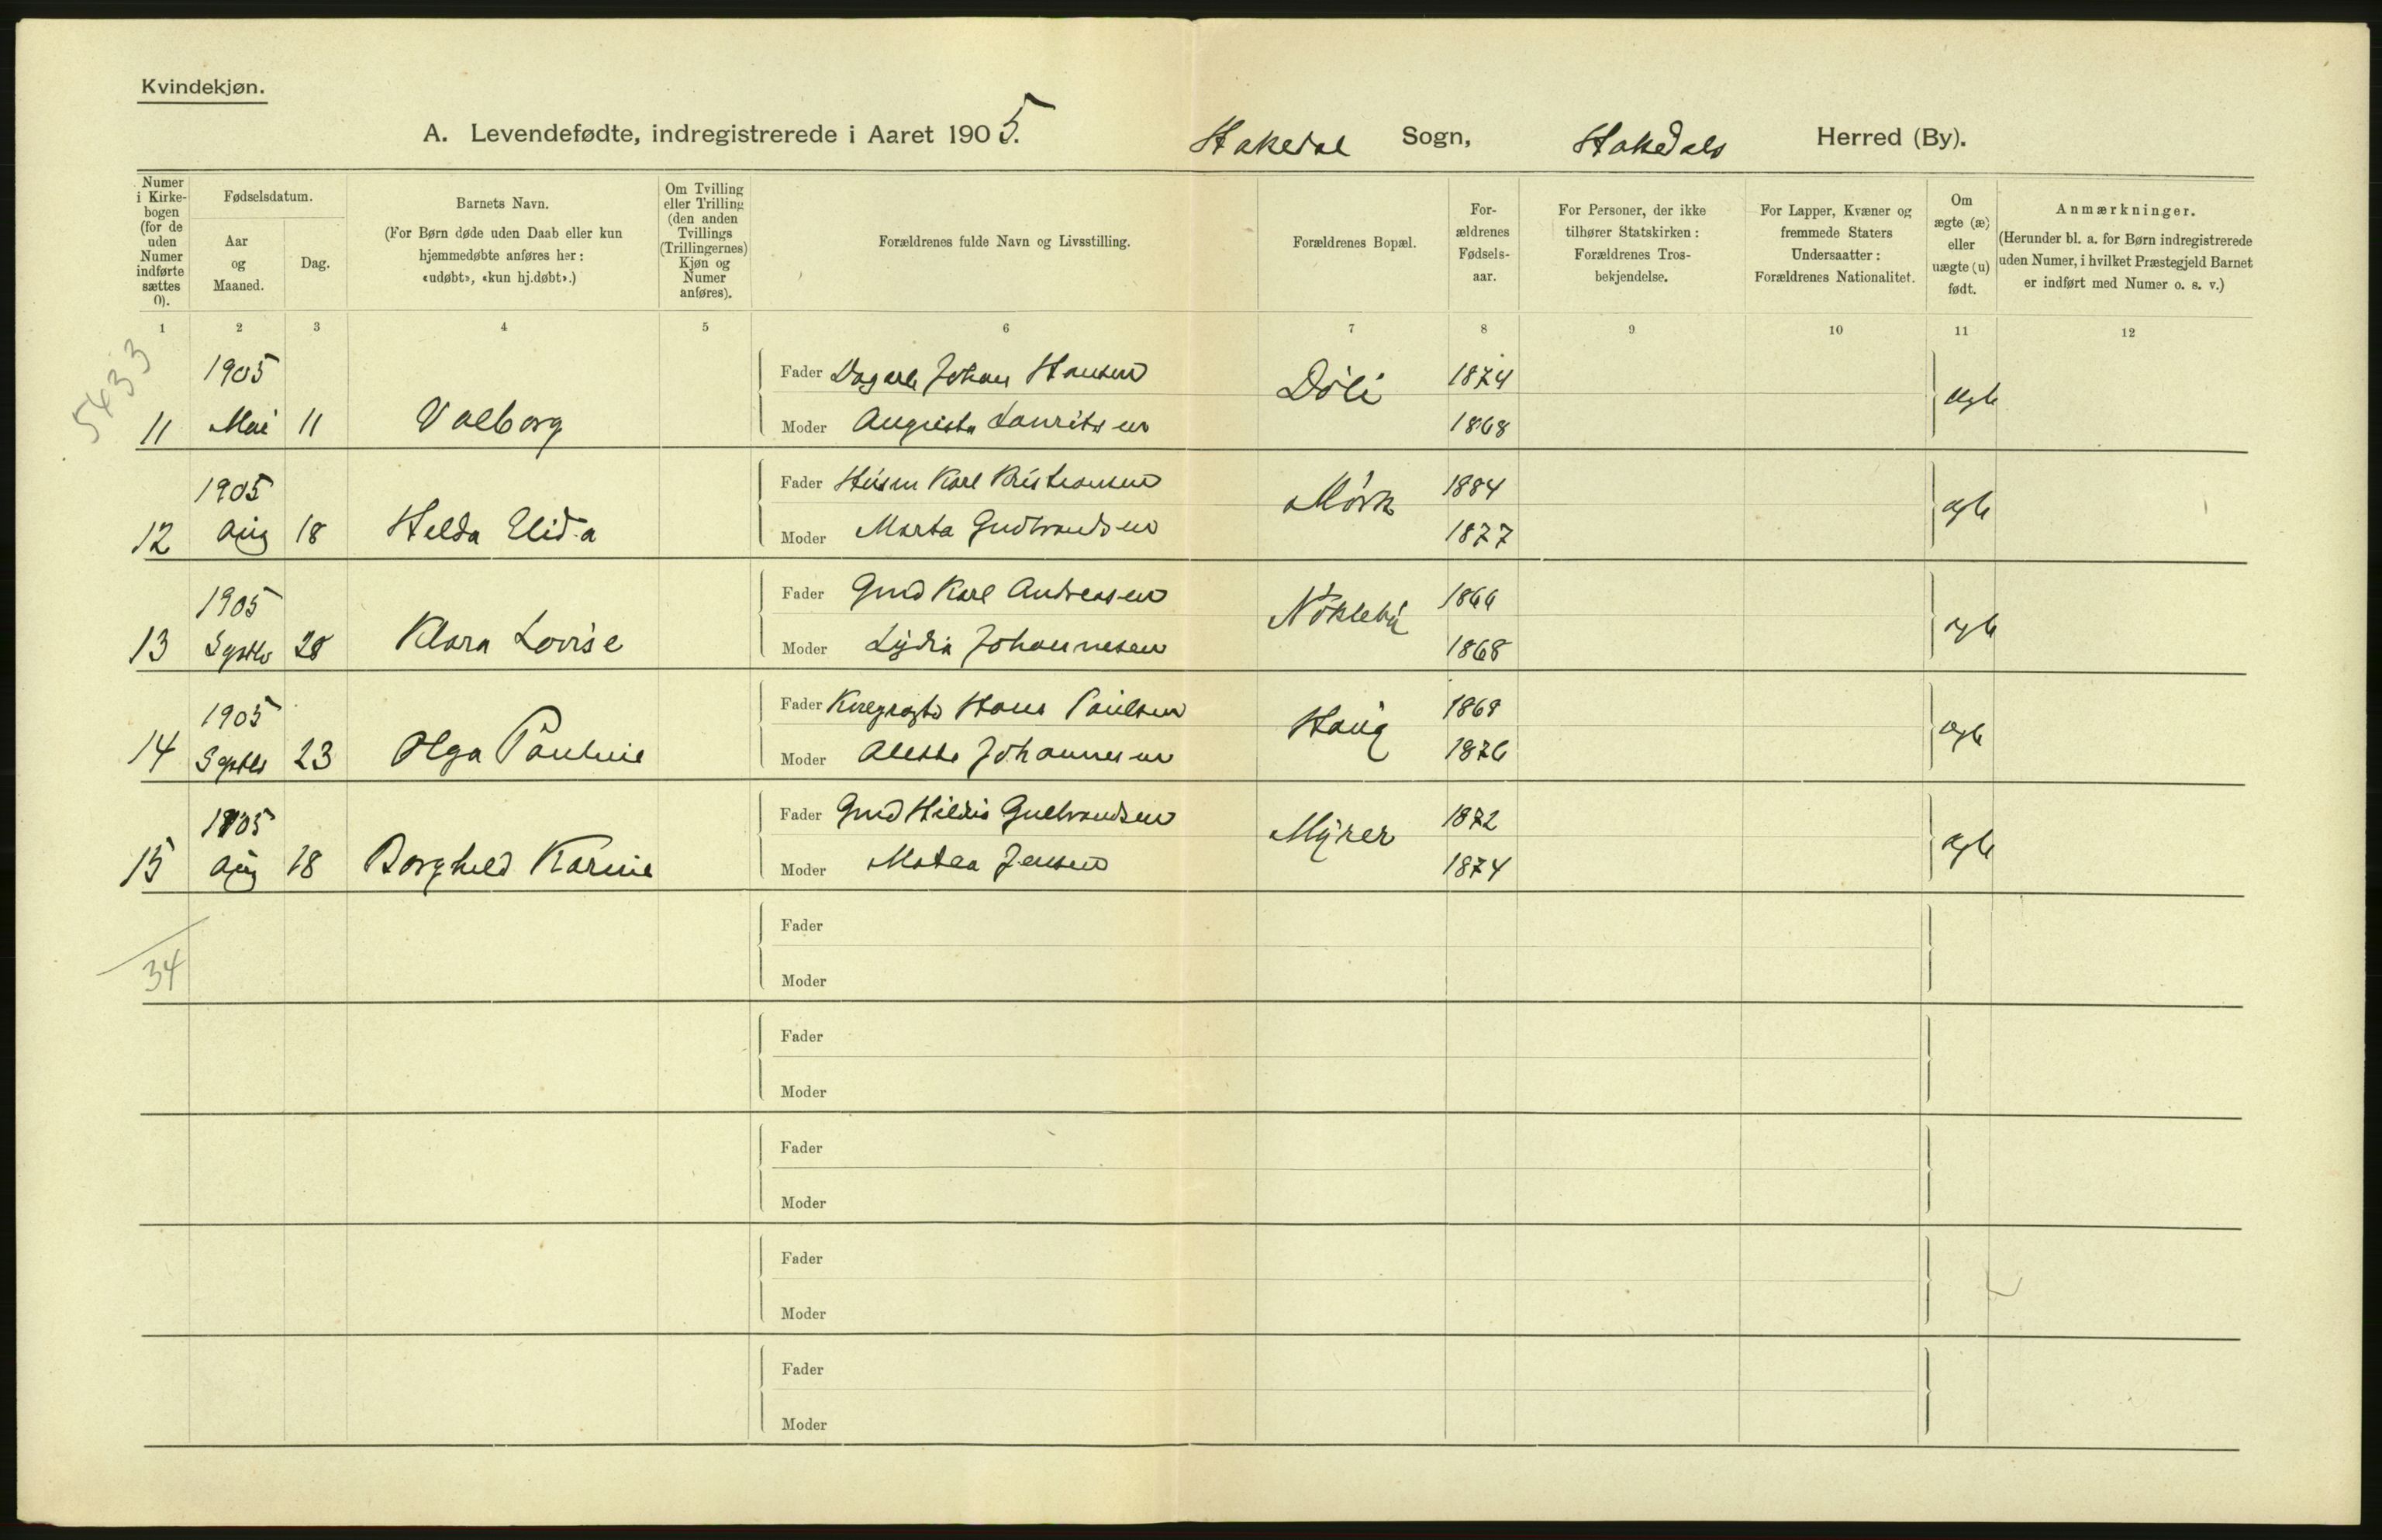 Kvindekjøn.
A. Levendefødte, indregistrerede i Aaret 1905. Hakedal Sogn, Hakedals Herred (By).
Numer i Kirkebogen (for de uden Numer indførte sættes 0).
Fødselsdatum.
Aar og Maaned.
Dag.
Barnets Navn.
(For Børn døde uden Daab eller kun hjemmedøbte anføres her: «udøbt», «kun hj.døbt».)
Om Tvilling eller Trilling (den anden Tvillings (Trillingernes) Kjøn og Numer anføres).
Forældrenes fulde Navn og Livsstilling.
Forældrenes Bopæl.
Forældrenes Fødselsaar.
For Personer, der ikke tilhører Statskirken: Forældrenes Trosbekjendelse.
For Lapper, Kvæner og fremmede Staters Undersaatter: Forældrenes Nationalitet.
Om ægte (æ) eller uægte (u) født.
Anmærkninger.
(Herunder bl. a. for Børn indregistrerede uden Numer, i hvilket Præstegjeld Barnet er indført med Numer o. s. v.)
1 2 3 4 5 6 7 8 9 10 11 12
5433
1905 Fader Johan Hansen Döli 1874
11 Mai 11 Valborg Moder Augusta Lauritsen 1868 ægte
1905 Fader Karl Kristiansen Mörk 1884
12 Aug 18 Helda Elida Moder Marta Gudbrandsen 1877 ægte
1905 Fader Gmd Karl Andreasen Nökleby 1866
13 Septbr 28 Klara Lovise Moder Lydia Johannesen 1868 ægte
1905 Fader Hans Paulsen Haug 1868
14 Septbr 23 Olga Pauline Moder Johannesen 1876 ægte
1905 Fader Gmd Gulbrandsen Myrer 1872
15 Aug 18 Borghild Karine Moder Matea Jensen 1874 ægte
34
Fader
Moder
Fader
Moder
Fader
Moder
Fader
Moder
Fader
Moder